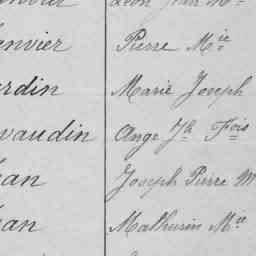 Léon Jean M
anvier Pierre M ie
rdin Marie Joseph
vaudin Ange Jh Fois
an Joseph Pierre M
an Mathurin M ie